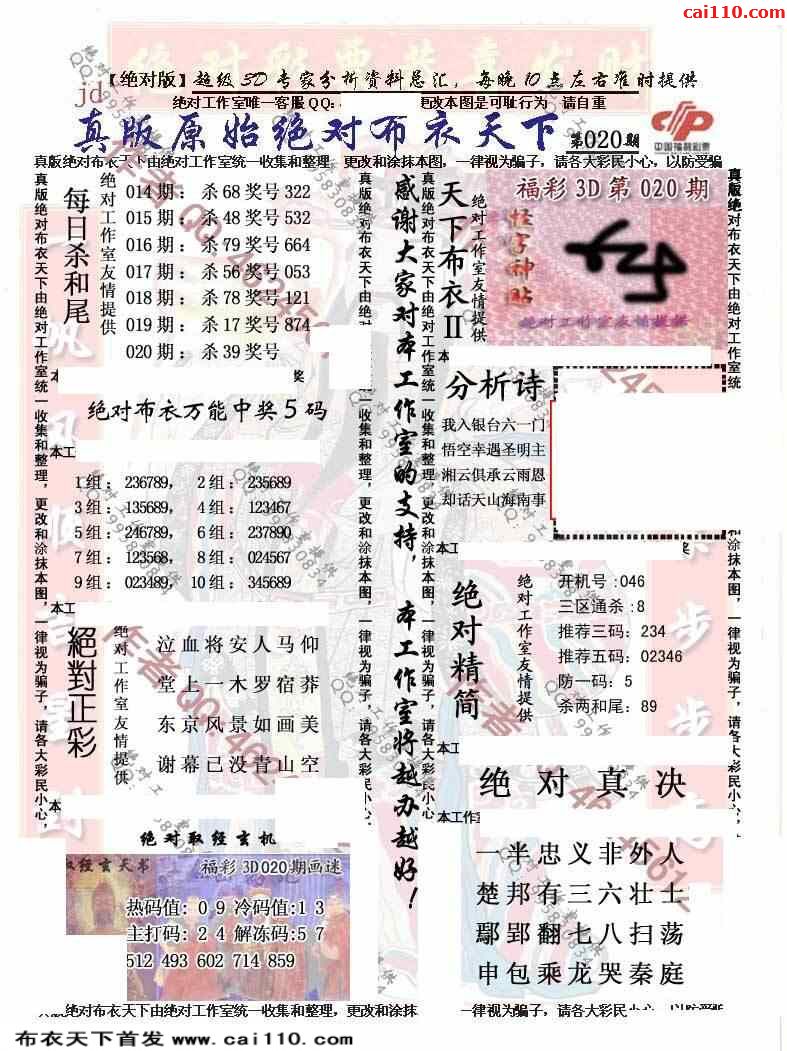 cai110.com
【绝对版】超级3D专家分析资料总汇，每晚10点左右准时提供
jd
绝对工作室唯一客服QQ: 更改本图是可耻行为 请自重
真版原始绝对布衣天下 第020期
中国福利彩票
真版绝对布衣天下由绝对工作室统一收集和整理，更改和涂抹本图，一律视为骗子，请各大彩民小心，以防受骗
真版绝对布衣天下由绝对工作室统一收集和整理，更改和涂抹本图，一律视为骗子，请各大彩民小心，
每日杀和尾
绝对工作室友情提供
014期：杀68奖号322
015期：杀48奖号532
016期：杀79奖号664
017期：杀56奖号053
018期：杀78奖号121
019期：杀17奖号874
020期：杀39奖号
本 奖
绝对布衣万能中奖5码
本工
1组：236789， 2组：235689
3组：135689， 4组：123467
5组：246789， 6组：237890
7组：123568， 8组：024567
9组：023489， 10组：345689
本工
絕對正彩
绝对工作室友情提供
泣血将安人马仰
堂上一木罗宿莽
东京风景如画美
谢幕已没青山空
本
绝对取经玄机
取经玄天书 福彩3D020期画迷
热码值: 0 9 冷码值:1 3
主打码: 2 4 解冻码:5 7
512 493 602 714 859
真版绝对布衣天下由绝对工作室统一收集和整理，更改和涂抹本图，一律视为骗子，请各大彩民小心，
感谢大家对本工作室的支持，本工作室将越办越好！
真版绝对布衣天下由绝对工作室统一收集和整理，更改和涂抹本图，一律视为骗子，请各大彩民小心，
天下布衣II
绝对工作室友情提供
福彩3D第020期
怪字神贴
绝对工作室友情提供
本
分析诗
我入银台六一门
悟空幸遇圣明主
湘云俱承云雨恩
却话天山海南事
本工 奖
绝对精简
绝对工作室友情提供
开机号:046
三区通杀:8
推荐三码: 234
推荐五码:02346
防一码: 5
杀两和尾: 89
本工
绝对真决
本工作室
一半忠义非外人
楚邦有三六壮士
鄢郢翻七八扫荡
申包乘龙哭秦庭
真版绝对布衣天下由绝对工作室统一
收集和整理，更改和涂抹本图，一律视为骗子，请各大彩民小心，
绝对布衣天下由绝对工作室统一收集和整理，更改和涂抹 一律视为骗子，请各大彩民小心，以防受骗
布衣天下首发 www.cai110.com